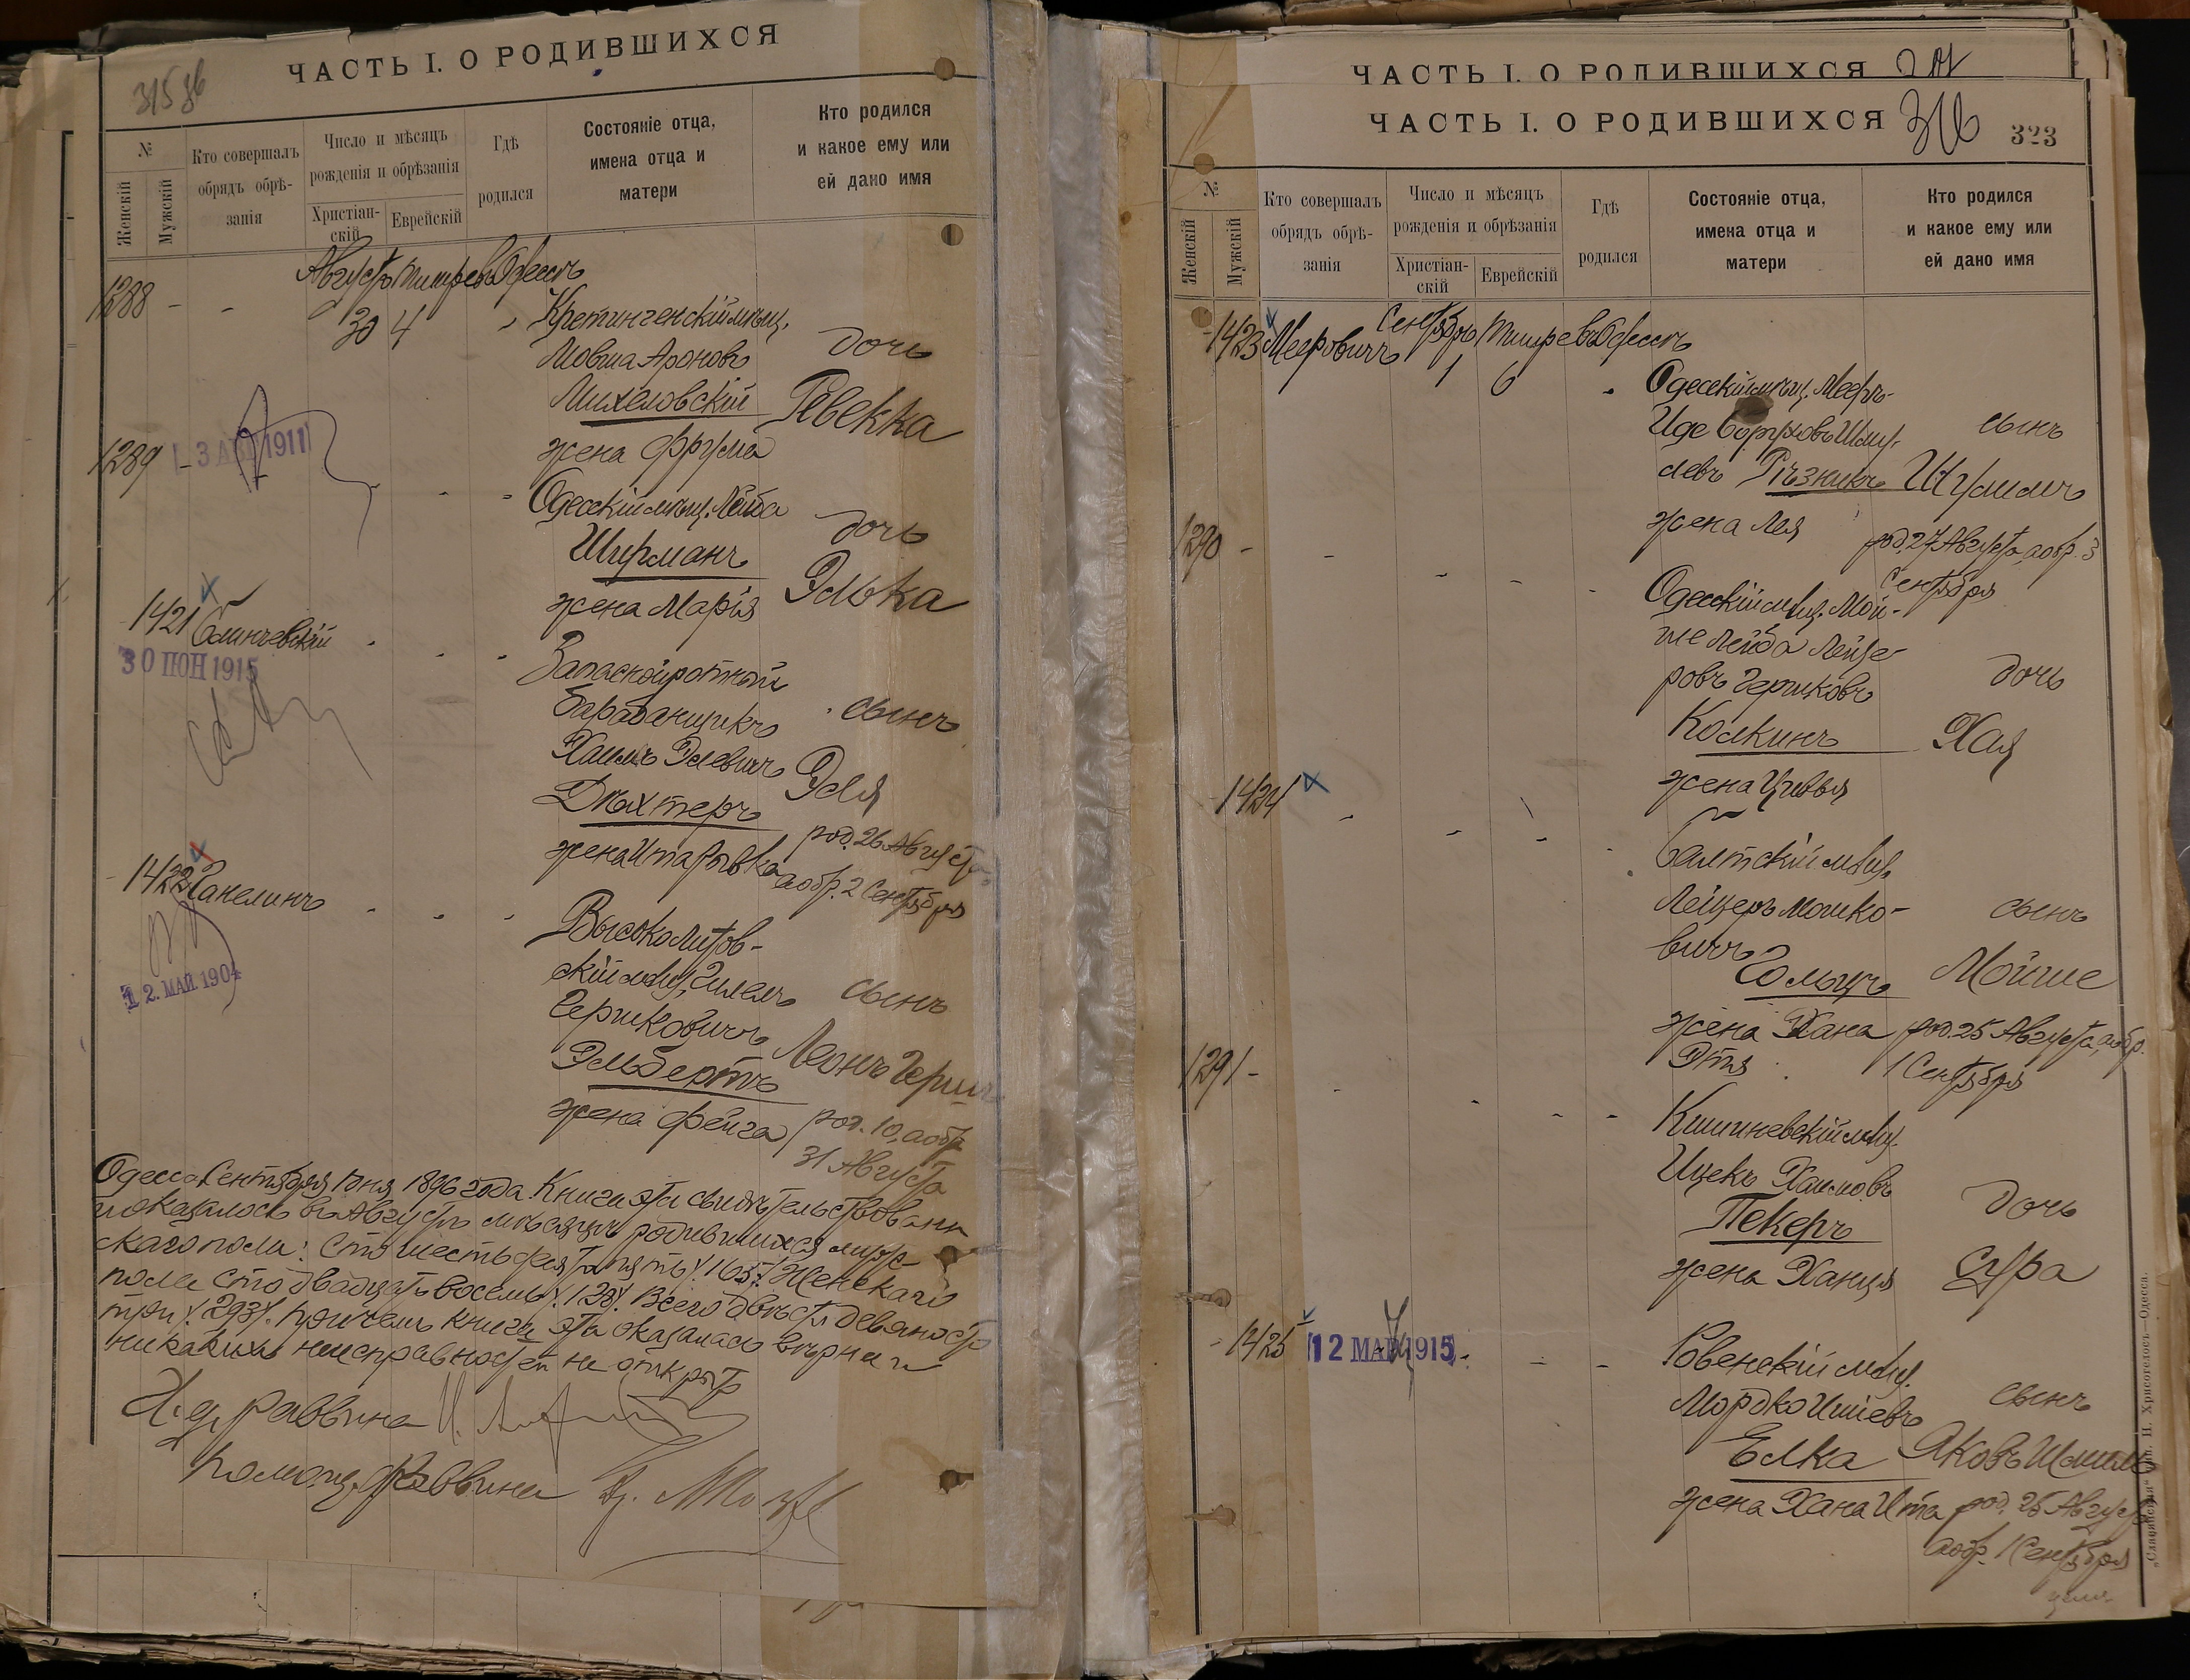 315 об
ЧАСТЬ I. О РОДИВШИХСЯ
№
Женскій
Мужскій
Кто совершалъ
обрядъ обрѣ-
занія
Число и мѣсяцъ
рожденія и обрѣзанія
Христіан-
скій
Еврейскій
Гдѣ
родился
Состояніе отца,
имена отца и
матери
Кто родился
и какое ему или
ей дано имя
Августъ Тишрей въ Одессѣ
1288 - - 30 4
Кретингенскій мѣщ.
Мовша Ароновъ
Михеловскій
жена Фрума
дочь
Ревекка
1289 -
3 АВГ 1911
Одесскій мѣщ. Лейба
Ширманъ
жена Марія
дочь
Элька
1421
30 ІЮН 1915
Запасной ротный
барабанщикъ
Хаимъ Элевичъ
Дѣхтеръ
жена Ита Рывка
сынъ
Эля
род. 26 Августа
а обр. 2 Сентября
1422
12. МАЙ 1904
Высоколитов-
скій мѣщ. Гилель
Гершковичъ
Эльбертъ
жена Фейга
сынъ
Леонъ Герш
род. 10, а обр.
31 Августа
Одесса Сентября 1 дня 1896 года. Книга эта свидѣтельствована
и оказалось въ Августѣ мѣсяцѣ родившихся муж-
скаго пола: сто шестьдесятъ пять /.165/. Женскаго
пола сто двадцать восемь /.128/. Всего двѣсти девяносто
три /.293/. причемъ книга эта оказалась вѣрна и
никакихъ неисправностей не открыто
И. д. раввина
Помощ. Раввина
ЧАСТЬ I. О РОДИВШИХСЯ
ЧАСТЬ I. О РОДИВШИХСЯ 316 323
№
Женскій
Мужскій
Кто совершалъ
обрядъ обрѣ-
занія
Число и мѣсяцъ
рожденія и обрѣзанія
Христіан-
скій
Еврейскій
Гдѣ
родился
Состояніе отца,
имена отца и
матери
Кто родился
и какое ему или
ей дано имя
Сентябрь Тишрей въ Одессѣ
1423 Мееровичъ 1 6
Одесскій мѣщ. Мееръ-
Иде Боруховъ Шму-
левъ Рѣзникъ
жена Лея
сынъ
Шулимъ
род. 27 Августа, а обр. 3
Сентября
1290 - -
Одесскій мѣщ. Мой-
ше Лейба Лейзе-
ровъ Гершковъ
Колкинъ
жена Цивья
дочь
Хая
1424
Балтскій мѣщ.
Лейзеръ Мошко-
вичъ
Гольцъ
жена Хана
Этя
сынъ
Мойше
род. 25 Августа, а обр.
1 Сентября
1291 -
Кишиневскій мѣщ.
Ицекъ Хаимовъ
Пекеръ
жена Ханця
дочь
Сура
1425
12 МАЙ 1915
Ровенскій мѣщ.
Мордко
Елка
жена Хана Ита
сынъ
Яковъ Шмиль
род. 25 Августа
а обр. 1 Сентября
„Славянская“ Тип. Н. Хрисогелосъ—Одесса.